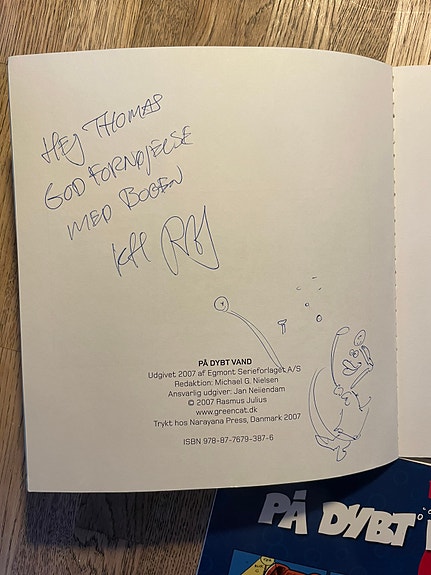 HEJ THOMAS
GOD FORNØJELSE
MED BOGEN
KH
PÅ DYBT VAND
Udgivet 2007 af Egmont Serieforlaget A/S
Redaktion: Michael G. Nielsen
Ansvarlig udgiver: Jan Neiiendam
© 2007 Rasmus Julius
www.greencat.dk
Trykt hos Narayana Press, Danmark 2007
ISBN 978-87-7679-387-6
PÅ DYBT